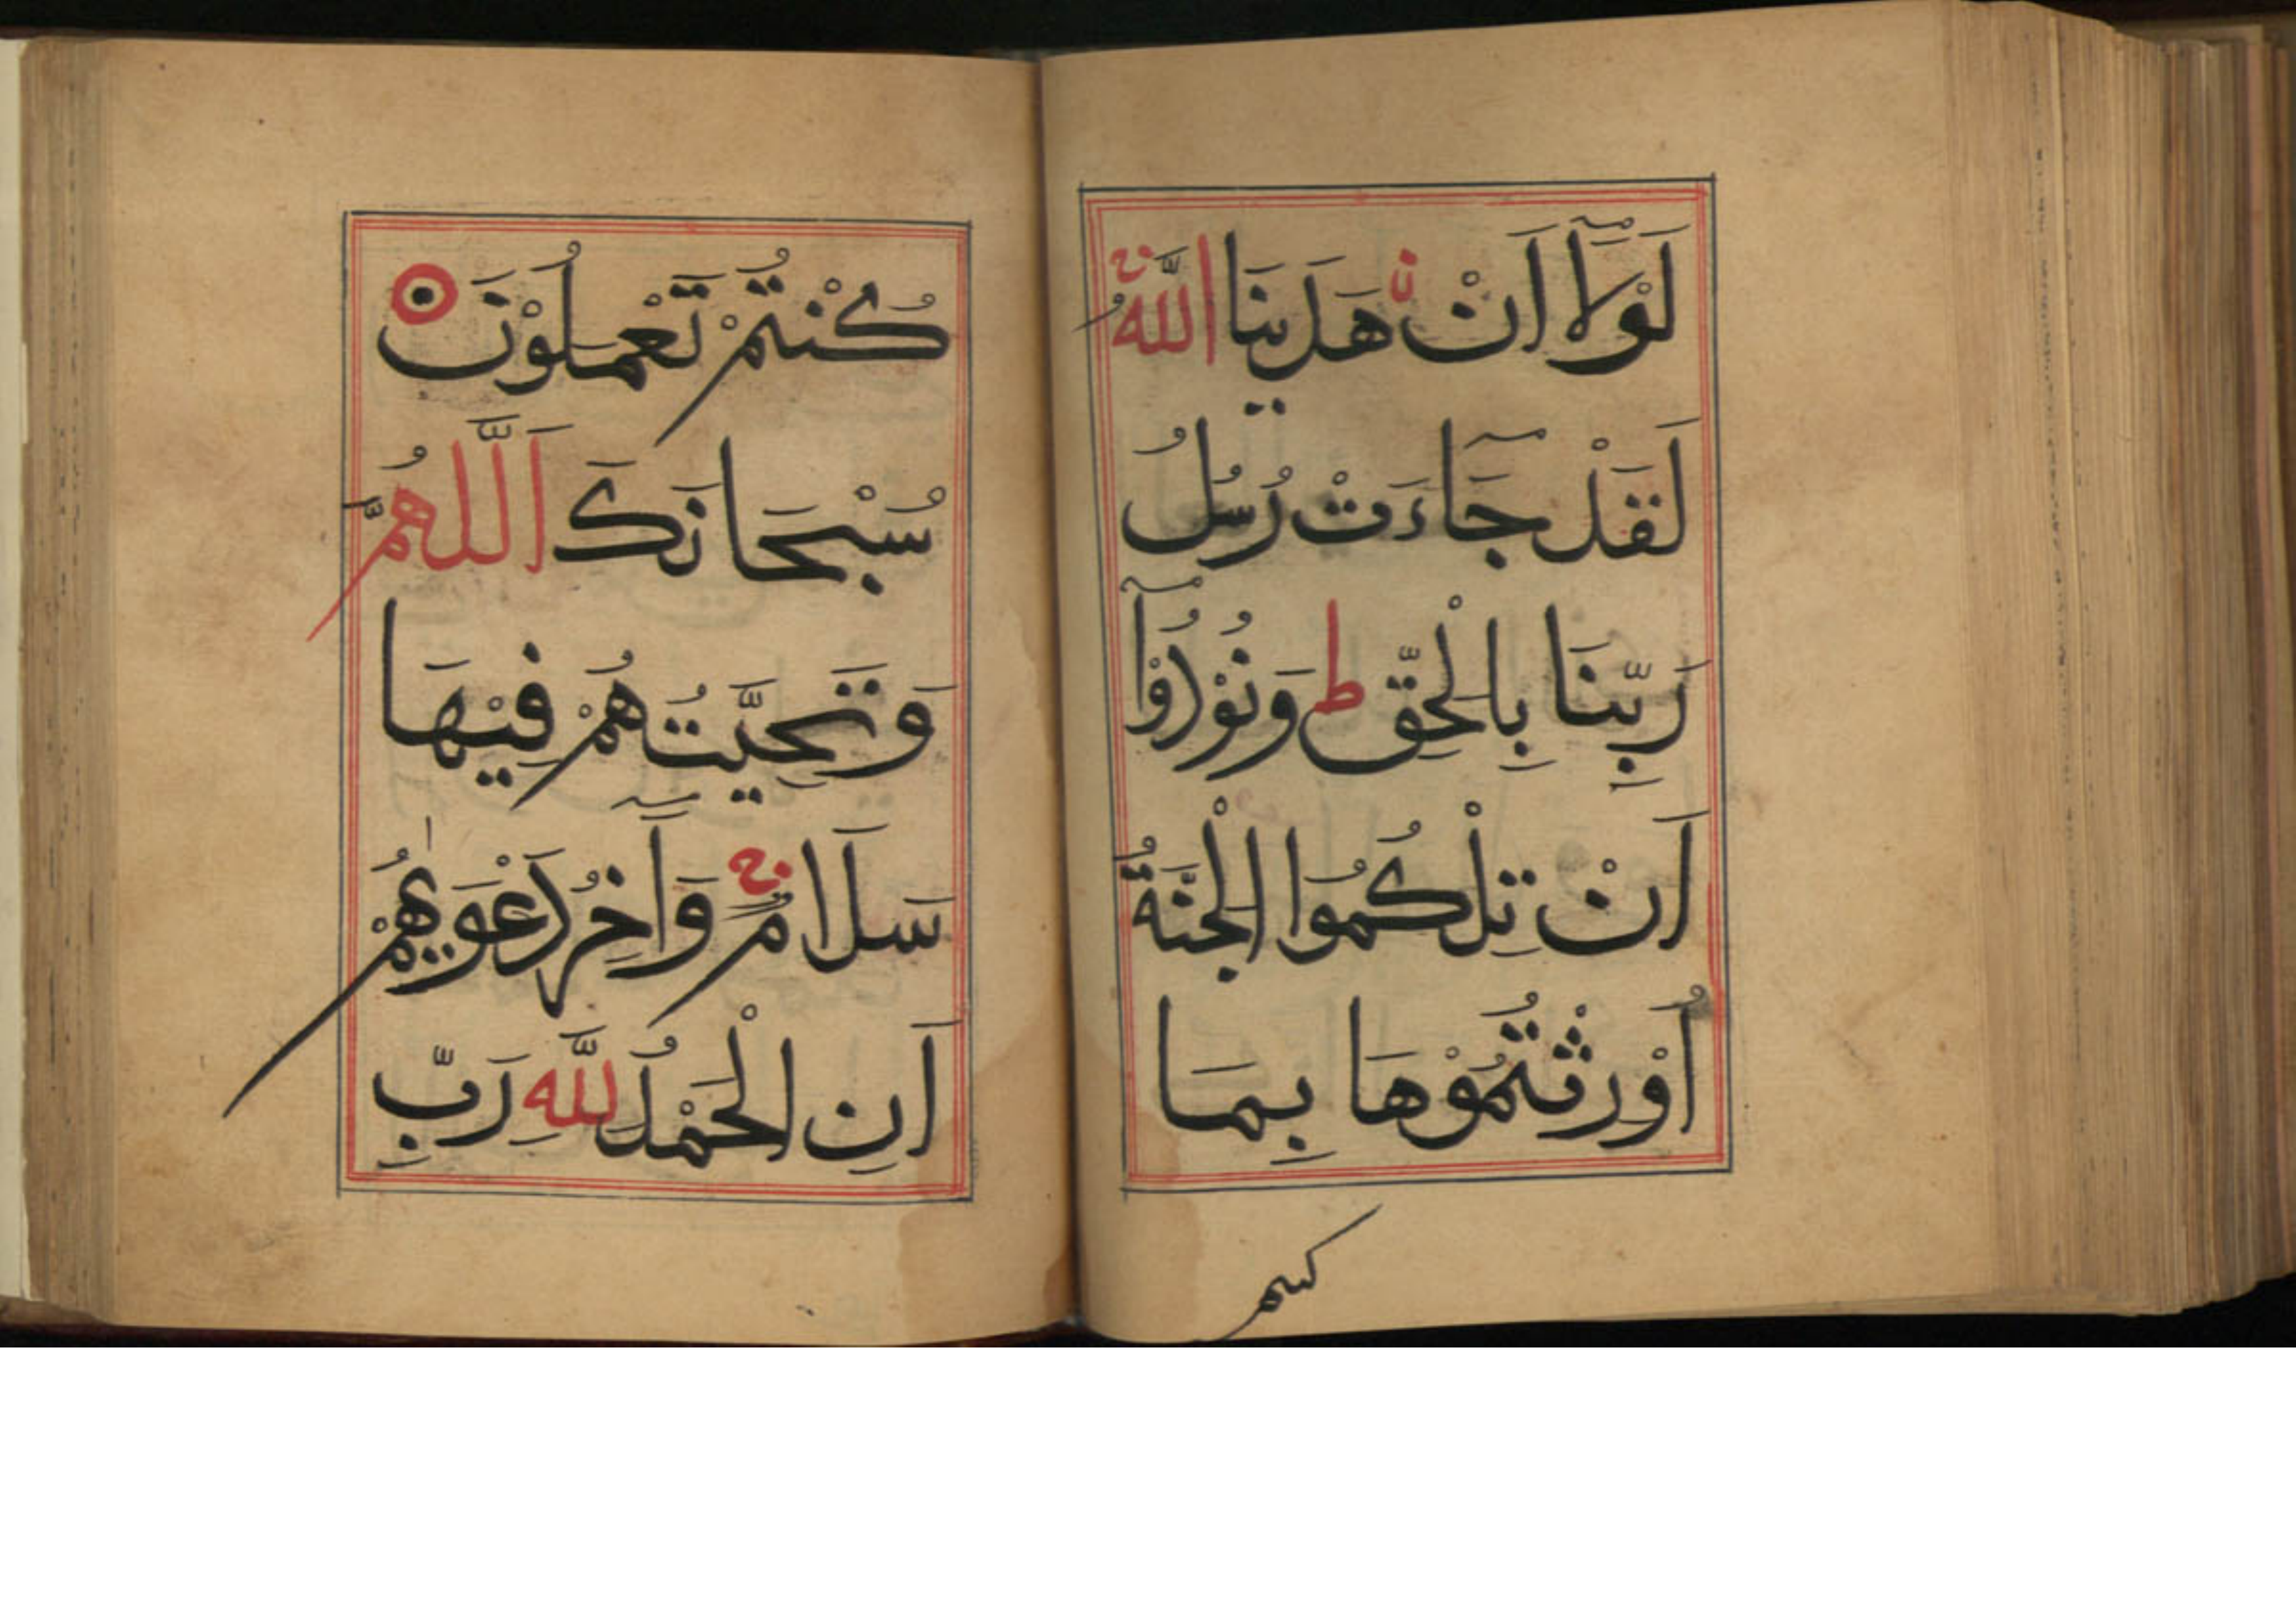 لَوْلَآ اَنْ هَدٰينَا اللّٰهُ
لَقَدْ جَآءَتْ رُسُلُ
رَبِّنَا بِالْحَقِّ ط وَنُوْدُوْآ
اَنْ تِلْكُمُوا الْجَنَّةُ
اُوْرِثْتُمُوْهَا بِمَا
كُنْتُمْ تَعْمَلُوْنَ
سُبْحَانَكَ اَللّٰهُمَّ
وَتَحِيَّتُهُمْ فِيْهَا
سَلَامٌ وَاٰخِرُ دَعْوٰيهُمْ
اَنِ الْحَمْدُ لِلّٰهِ رَبِّ